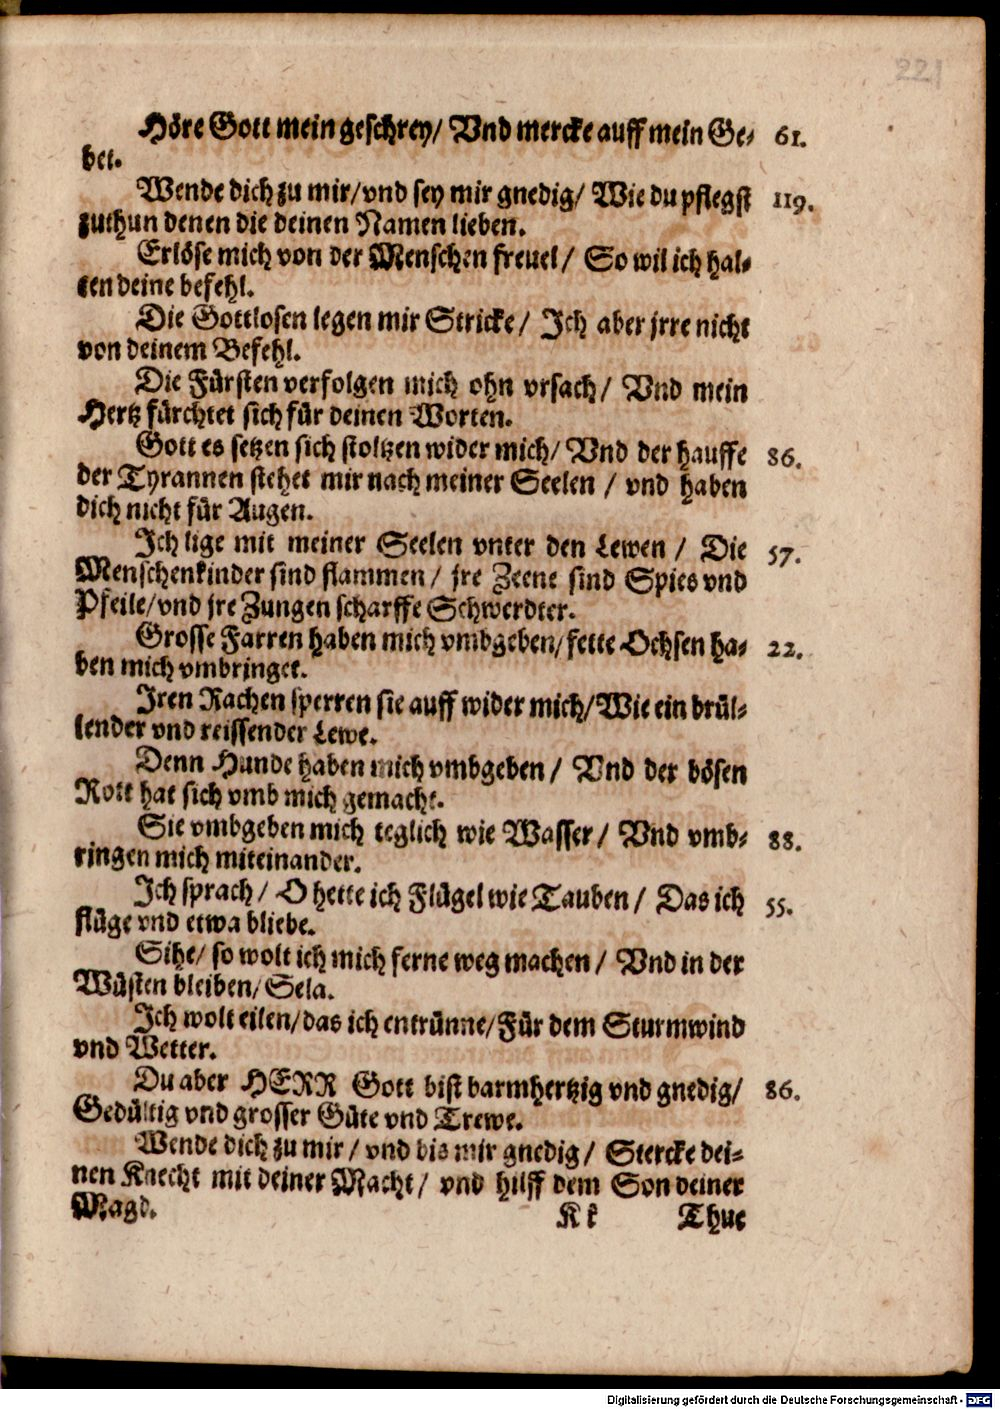 221
Höre Gott mein geschrey/ Vnd mercke auff mein Ge- 61.
bet.
Wende dich zu mir/vnd sey mir gnedig/ Wie du pflegst 119.
zuthun denen die deinen Namen lieben.
Erlöse mich von der Menschen freuel/ So wil ich hal-
ten deine befehl.
Die Gottlosen legen mir Stricke/ Ich aber jrre nicht
von deinem Befehl.
Die Fürsten verfolgen mich ohn vrsach/ Vnd mein
Hertz fürchtet sich für deinen Worten.
Gott es setzen sich stoltzen wider mich/ Vnd der hauffe 86.
der Tyrannen stehet mir nach meiner Seelen / vnd haben
dich nicht für Augen.
Ich lige mit meiner Seelen vnter den Lewen / Die 57.
Menschenkinder sind flammen/ jre Zeene sind Spies vnd
Pfeile/vnd jre Zungen scharffe Schwerdter.
Grosse Farren haben mich vmbgeben/fette Ochsen ha- 22.
ben mich vmbringet.
Iren Rachen sperren sie auff wider mich/Wie ein brül-
lender vnd reissender Lewe.
Denn Hunde haben mich vmbgeben/ Vnd der bösen
Rott hat sich vmb mich gemacht.
Sie vmbgeben mich teglich wie Wasser/ Vnd vmb- 88.
ringen mich miteinander.
Ich sprach/ O hette ich Flügel wie Tauben/ Das ich 55.
flüge vnd etwa bliebe.
Sihe/ so wolt ich mich ferne weg machen/ Vnd in der
Wüsten bleiben/Sela.
Ich wolt eilen/das ich entrünne/Für dem Sturmwind
vnd Wetter.
Du aber HERR Gott bist barmhertzig vnd gnedig/ 86.
Gedültig vnd grosser Güte vnd Trewe.
Wende dich zu mir/ vnd bis mir gnedig/ Stercke dei-
nen Knecht mit deiner Macht/ vnd hilff dem Son deiner
Magd.
Kk Thue
Digitalisierung gefördert durch die Deutsche Forschungsgemeinschaft - DFG